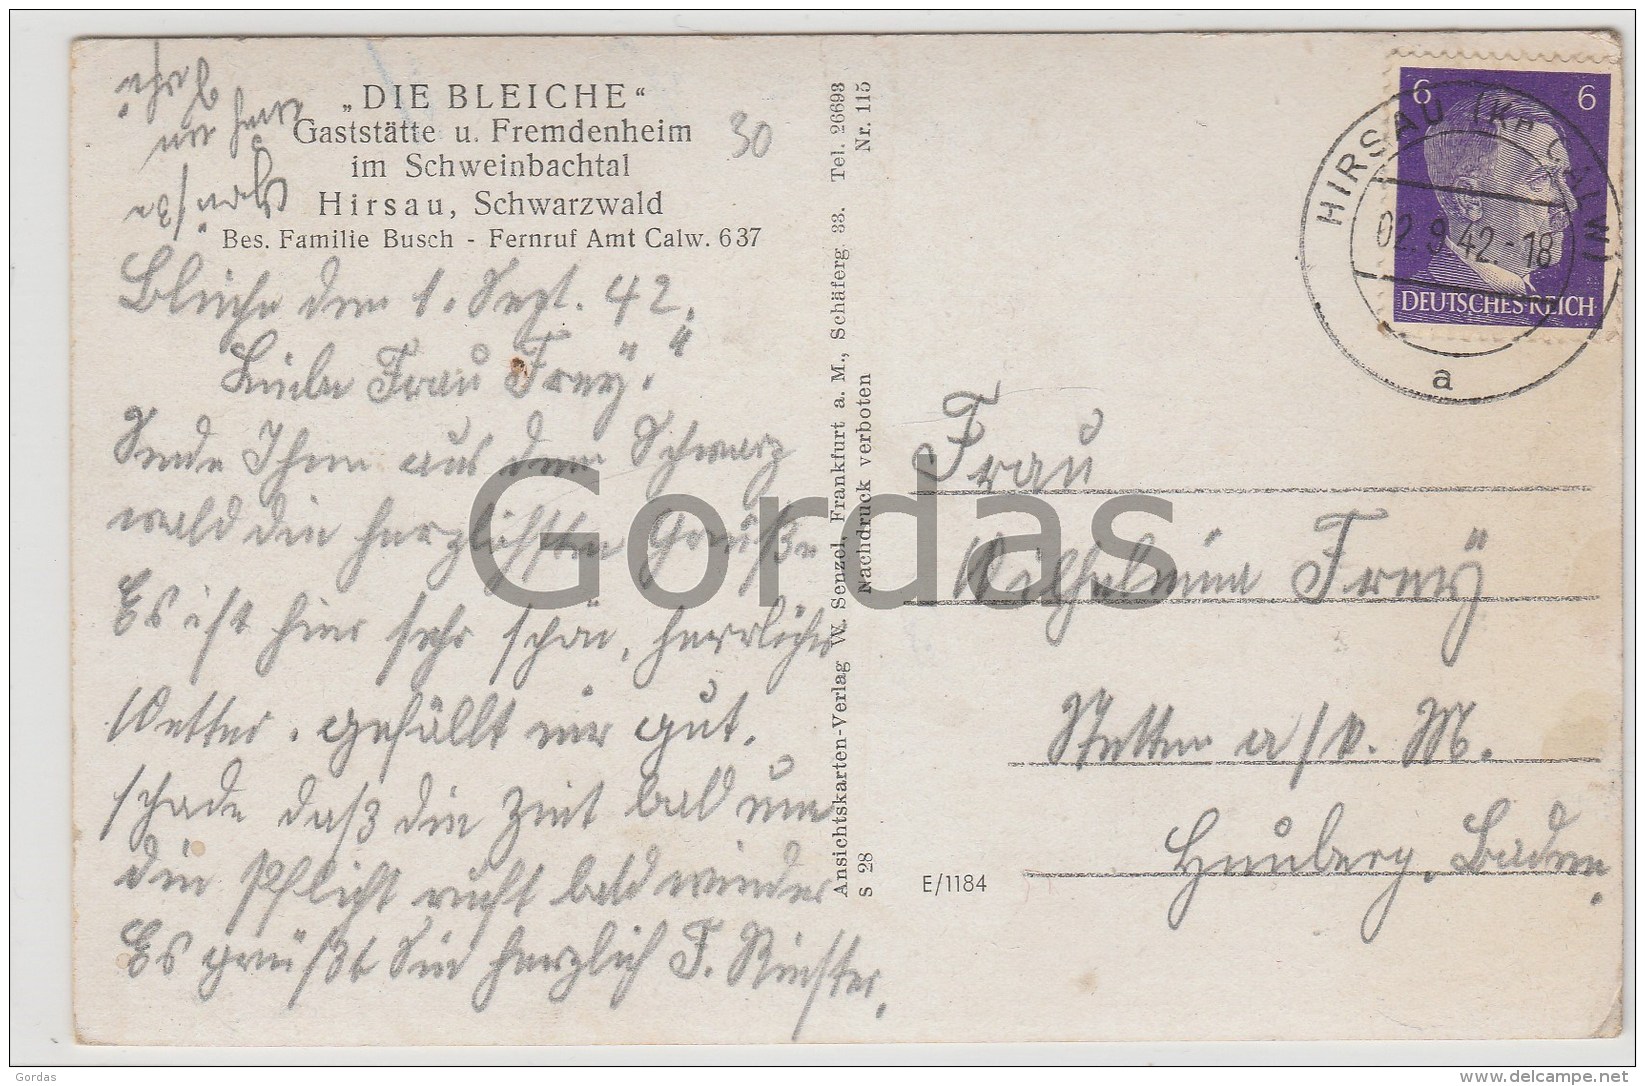 „DIE BLEICHE“
Gaststätte u. Fremdenheim
im Schweinbachtal
Hirsau, Schwarzwald
Bes. Familie Busch - Fernruf Amt Calw. 637
30
Bleiche den 1. Sept. 42.
Liebe Frau Frey!
Sende Ihnen aus dem Schwarz
wald die herzlichsten Grüße
Es ist hier sehr schön, herrliches
Wetter. gefällt mir gut.
schade daß die Zeit bald um
die Pflicht ruft bald wieder
Es grüßt Sie herzlich F.
Ansichtskarten-Verlag W. Senzel, Frankfurt a. M., Schäferg. 33. Tel. 26693
S 28 Nachdruck verboten Nr. 115
E/1184
6 6
DEUTSCHES REICH
HIRSAU (Kr. CALW)
02.9.42.-18
a
Frau
Wilhelmina Frey
Stetten a/k. M.
Heuberg. Baden.
Gordas
Gordas